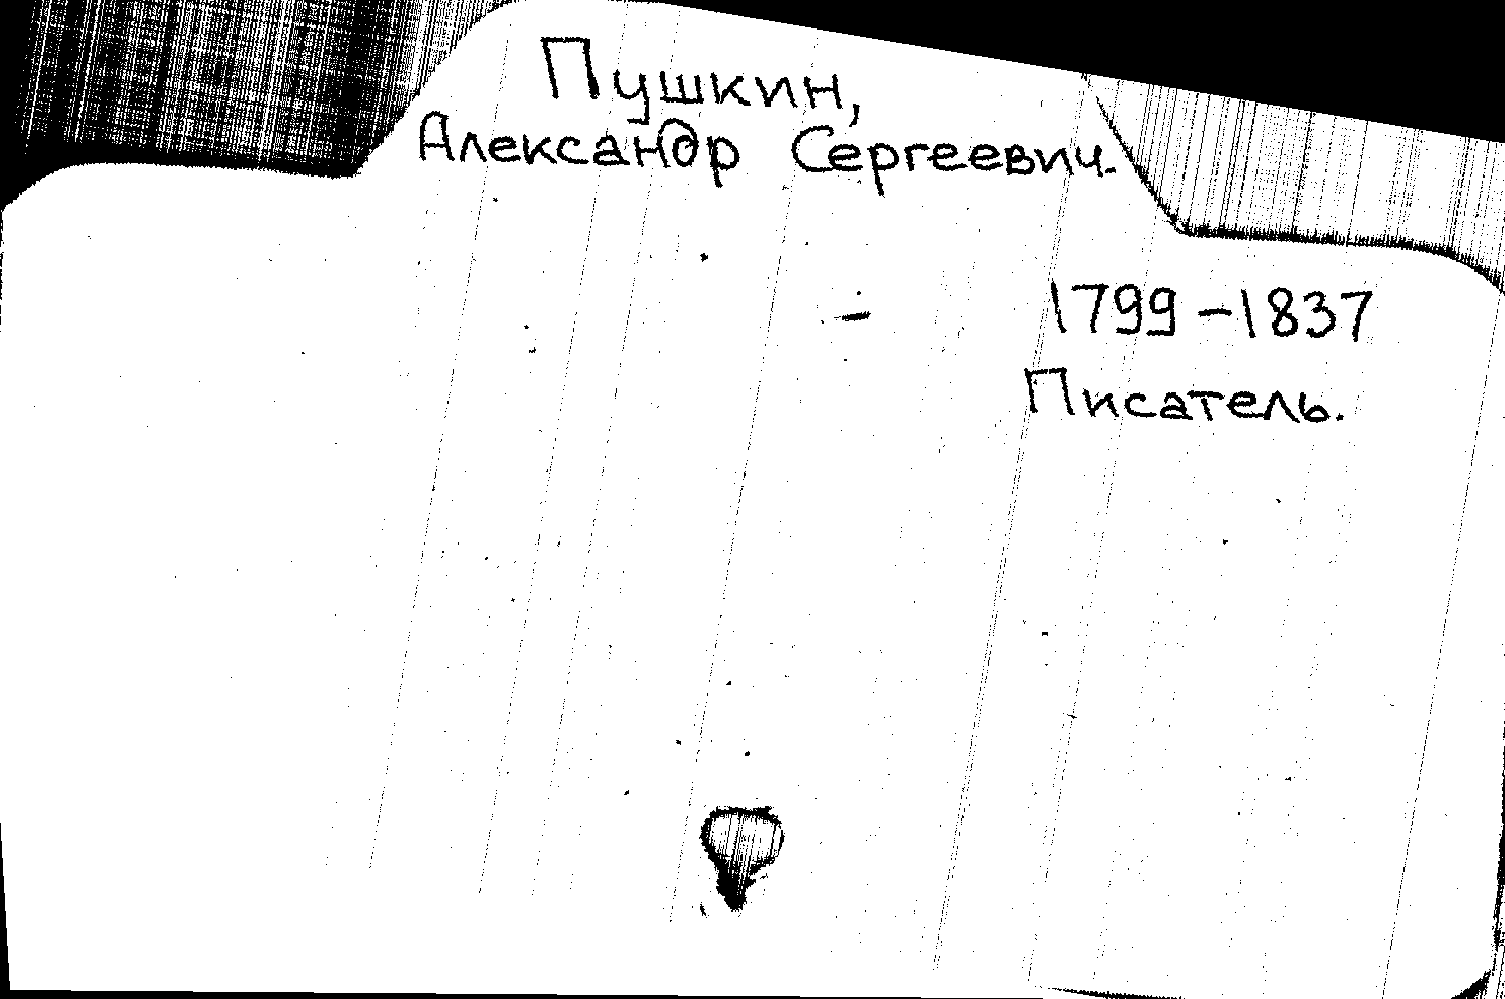 Пушкин,
Александр Сергеевич.
1799-1837
Писатель.